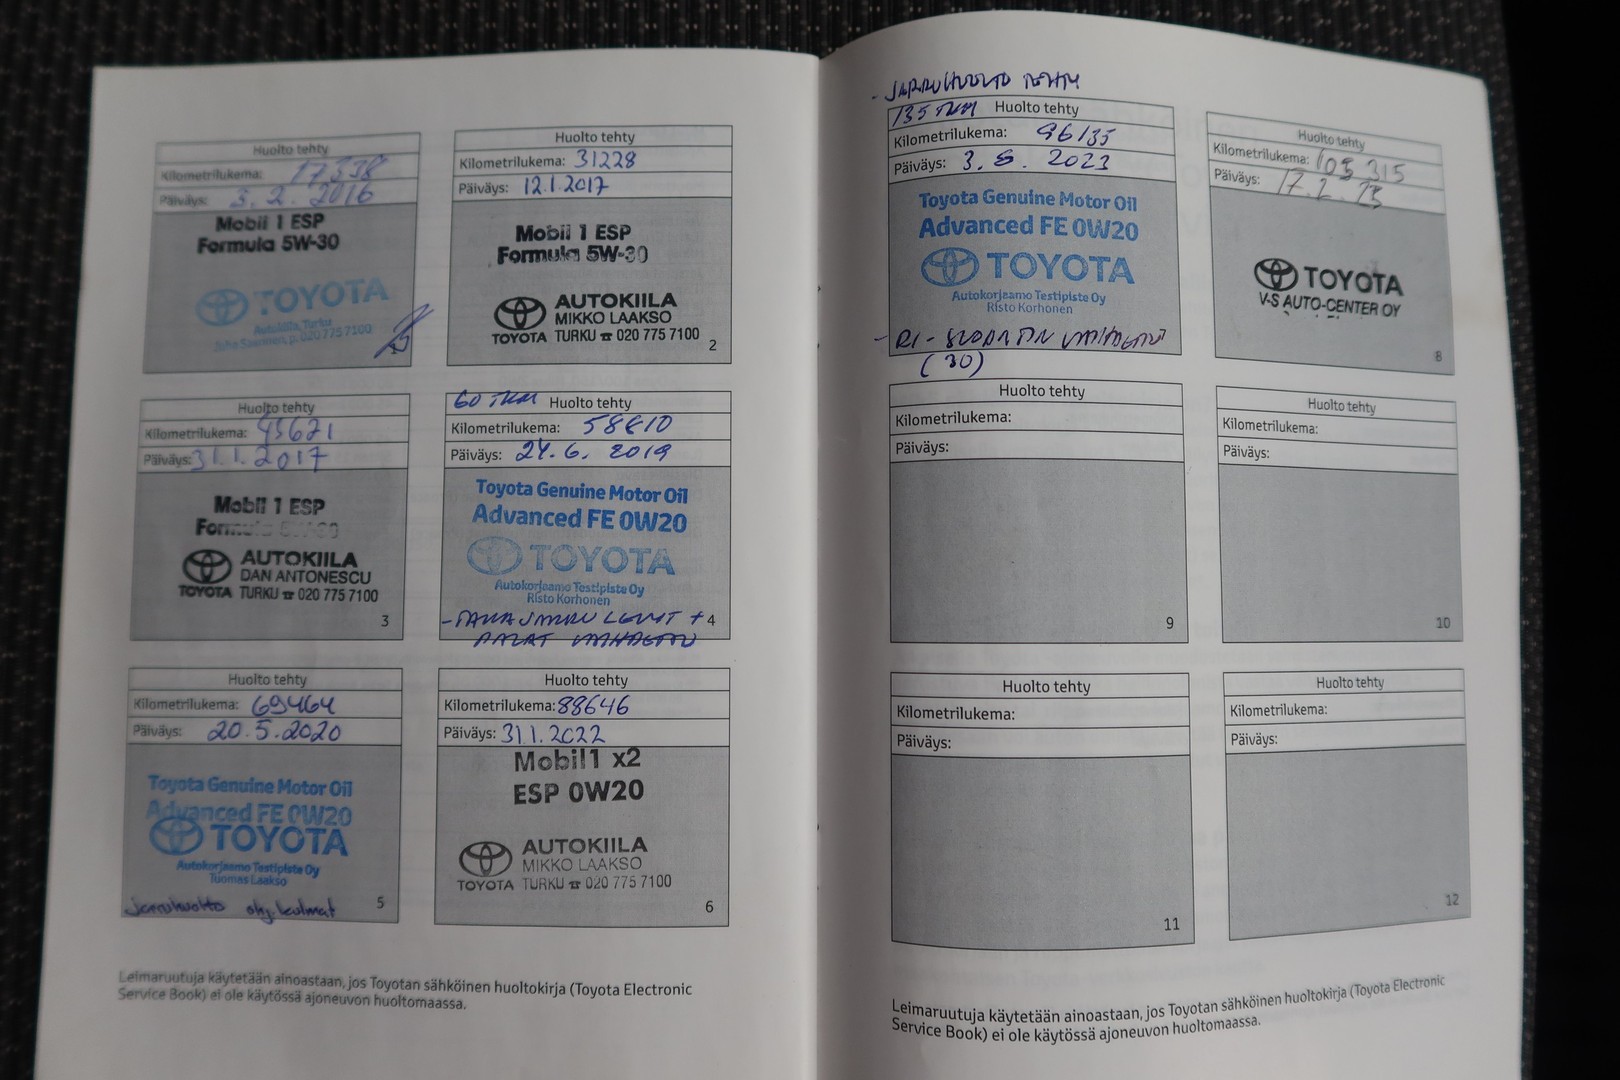 Huolto tehty
Kilometrilukema: 17338
Päiväys: 3. 2. 2016
Mobil 1 ESP
Formula 5W-30
TOYOTA
Autokiila, Turku
p. 020 775 7100
Huolto tehty
Kilometrilukema: 31228
Päiväys: 12.1.2017
Mobil 1 ESP
Formula 5W-30
AUTOKIILA
MIKKO LAAKSO
TOYOTA TURKU ☎ 020 775 7100
2
Huolto tehty
Kilometrilukema: 45621
Päiväys: 31.1.2017
Mobil 1 ESP
Formula 5W-30
AUTOKIILA
DAN ANTONESCU
TOYOTA TURKU ☎ 020 775 7100
3
60 TKM Huolto tehty
Kilometrilukema: 58810
Päiväys: 24.6. 2019
Toyota Genuine Motor Oil
Advanced FE 0W20
TOYOTA
Autokorjaamo Testipiste Oy
Risto Korhonen
- TAKAJARRU LEVYT +
PALAT VAIHDETTU
4
Huolto tehty
Kilometrilukema: 69464
Päiväys: 20.5.2020
Toyota Genuine Motor Oil
Advanced FE 0W20
TOYOTA
Autokorjaamo Testipiste Oy
Tuomas Laakso
jarruhuolto ohj.kulmat
5
Huolto tehty
Kilometrilukema: 88646
Päiväys: 31.1.2022
Mobil1 x2
ESP 0W20
AUTOKIILA
MIKKO LAAKSO
TOYOTA TURKU ☎ 020 775 7100
6
Leimaruutuja käytetään ainoastaan, jos Toyotan sähköinen huoltokirja (Toyota Electronic
Service Book) ei ole käytössä ajoneuvon huoltomaassa.
- JARRUHUOLTO TEHTY
135 TKM Huolto tehty
Kilometrilukema: 96135
Päiväys: 3. 8. 2023
Toyota Genuine Motor Oil
Advanced FE 0W20
TOYOTA
Autokorjaamo Testipiste Oy
Risto Korhonen
VAIHDETTU
(30)
Huolto tehty
Kilometrilukema: 105 315
Päiväys: 17.2.
TOYOTA
V-S AUTO-CENTER OY
8
Huolto tehty
Kilometrilukema:
Päiväys:
9
Huolto tehty
Kilometrilukema:
Päiväys:
10
Huolto tehty
Kilometrilukema:
Päiväys:
11
Huolto tehty
Kilometrilukema:
Päiväys:
12
Leimaruutuja käytetään ainoastaan, jos Toyotan sähköinen huoltokirja (Toyota Electronic
Service Book) ei ole käytössä ajoneuvon huoltomaassa.